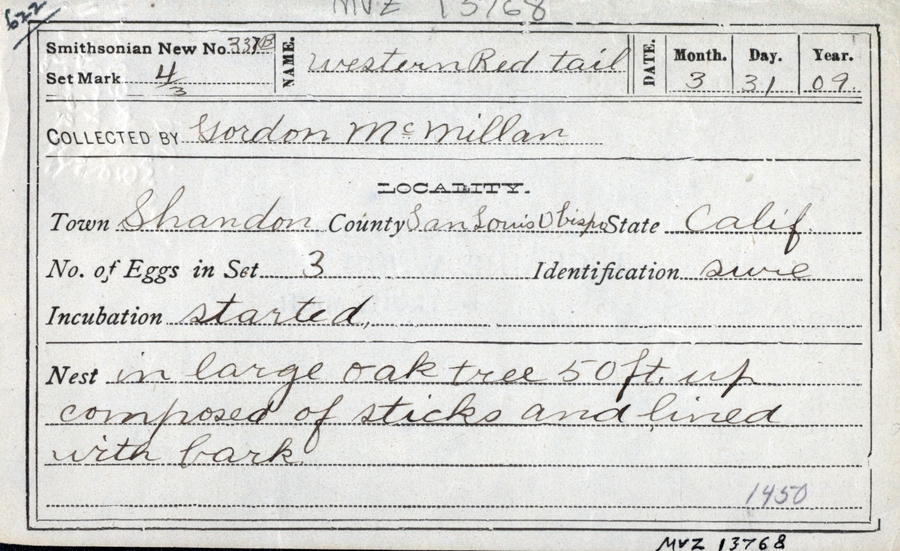 MVZ 13768
622
Smithsonian New No. 337B NAME. Western Red tail DATE. Month. Day. Year.
Set Mark 4/3 3 31 09.
COLLECTED BY Gordon McMillan
LOCALITY.
Town Shandon County San Louis Obispo State Calif.
No. of Eggs in Set 3 Identification sure
Incubation started,
Nest in large oak tree 50ft. up
composed of sticks and lined
with bark
1450
MVZ 13768